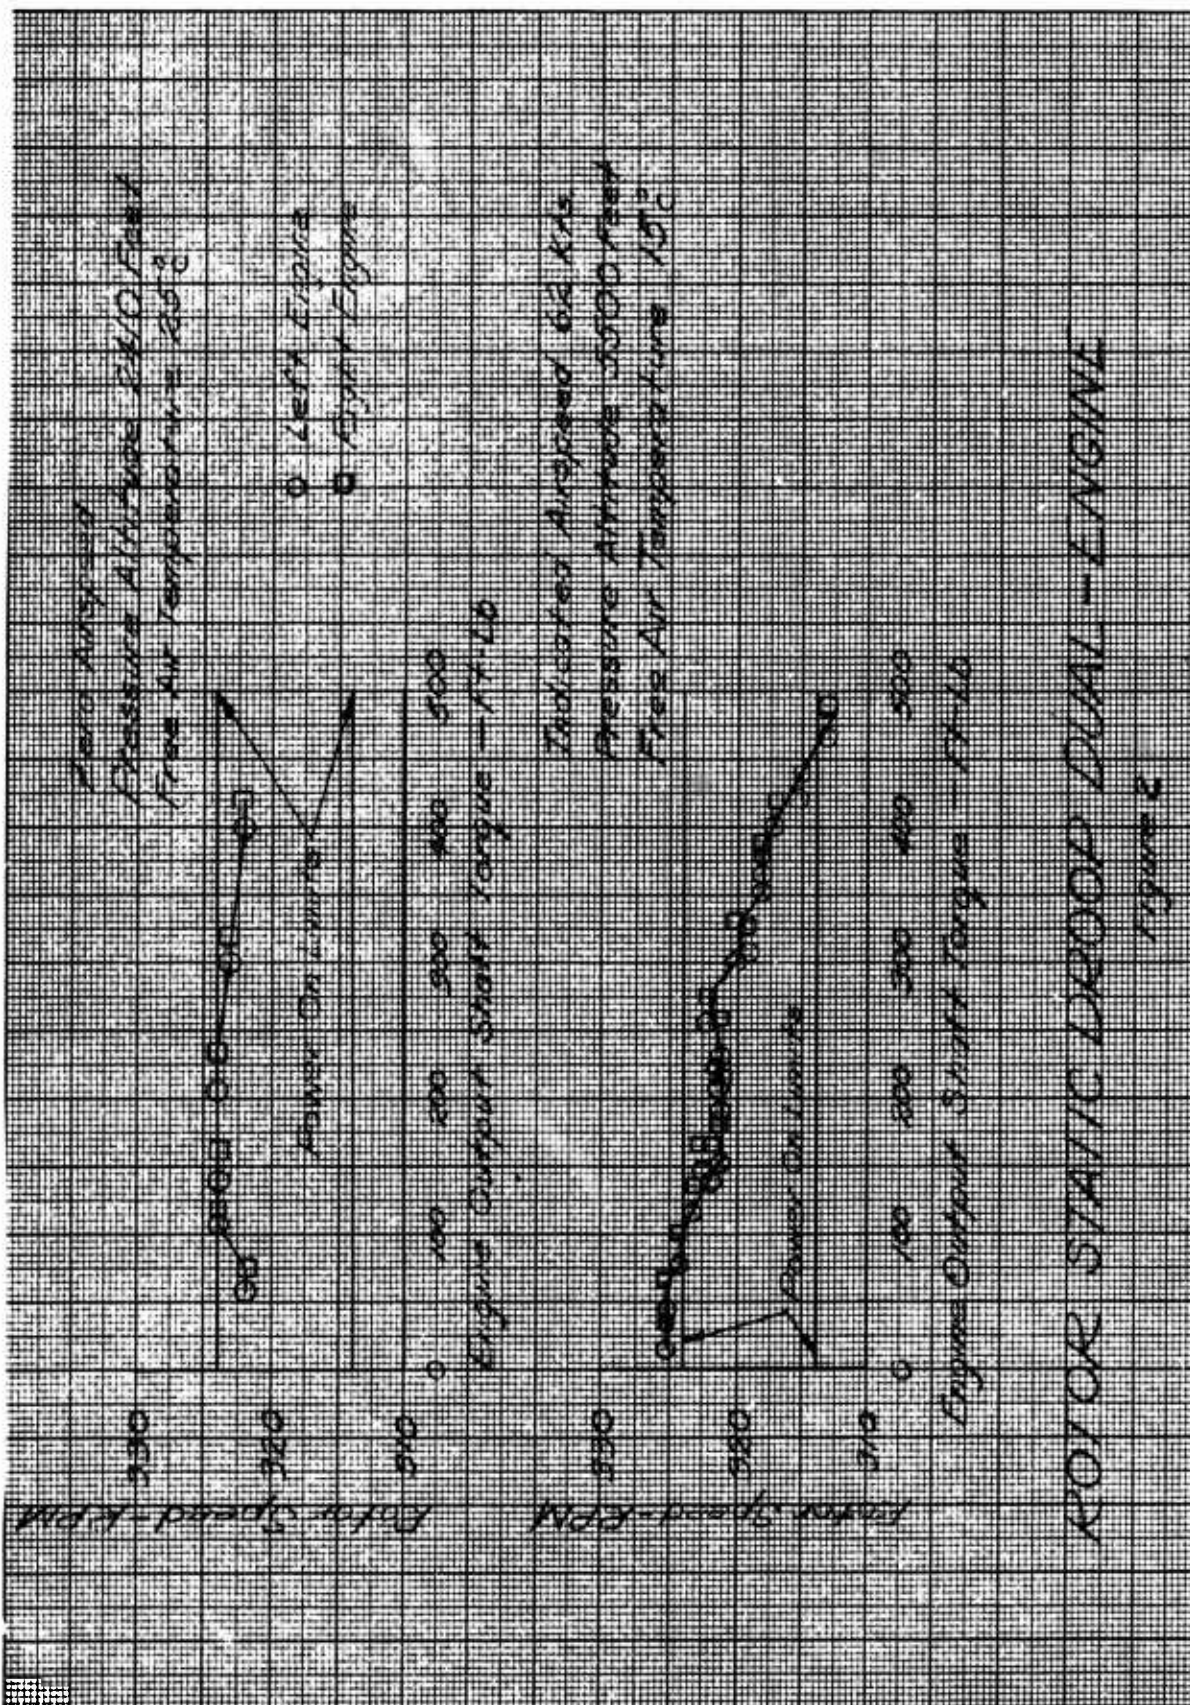 Zero Airspeed
Pressure Altitude 2410 Feet
Free Air Temperature 25°C
O Left Engine
□ Right Engine
Rotor Speed-RPM
330
320
310
Power On Limits
0 100 200 300 400 500
Engine Output Shaft Torque - Ft-Lb
Indicated Airspeed 62 Kts.
Pressure Altitude 5500 Feet
Free Air Temperature 15°C
Rotor Speed-RPM
330
320
310
Power On Limits
0 100 200 300 400 500
Engine Output Shaft Torque - Ft-Lb
ROTOR STATIC DROOP DUAL-ENGINE
Figure 2